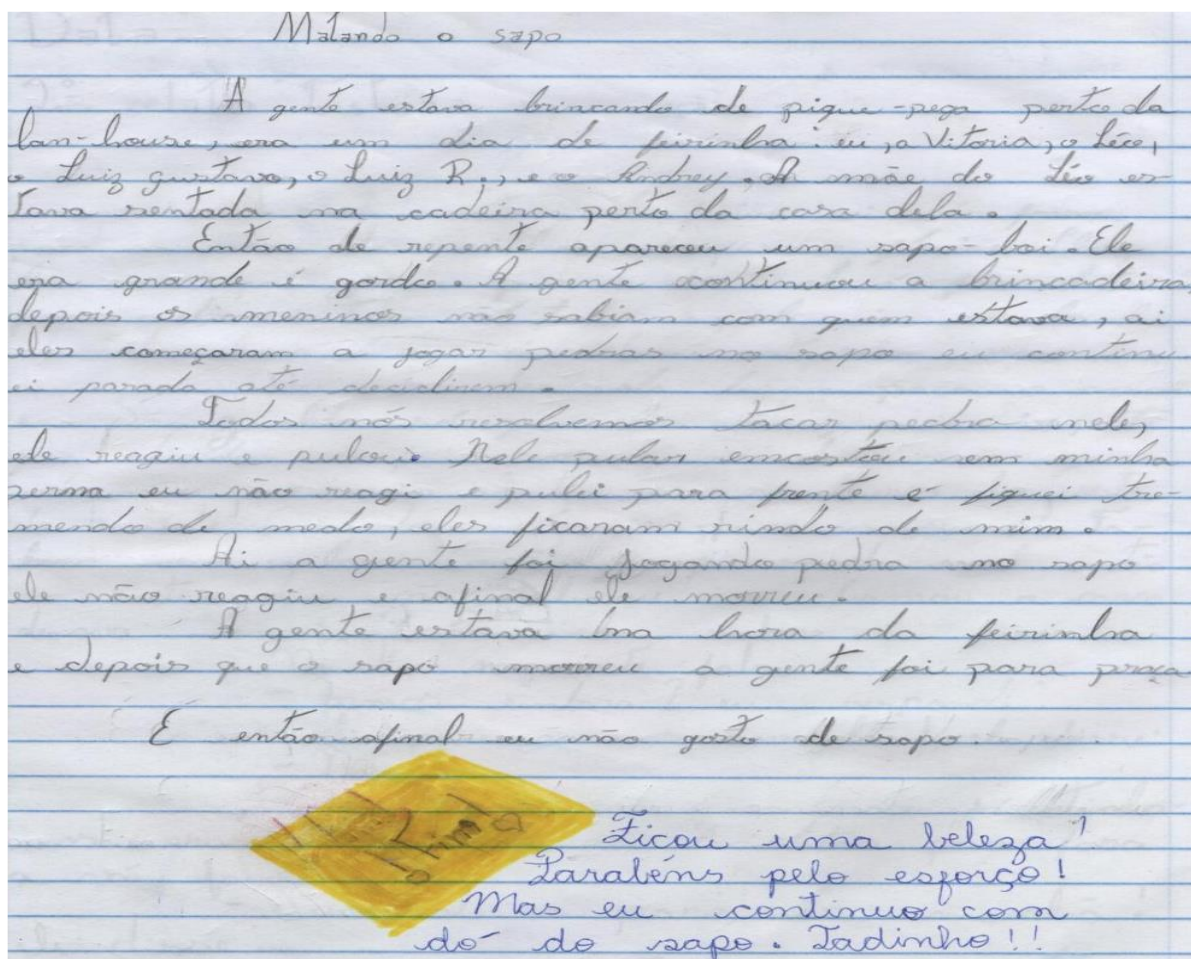 Matando o sapo
A gente estava brincando de pique-pega perto da
lan-house, era um dia de feirinha: eu, a Vitoria, o Léo,
o Luiz gustavo, o Luiz R., e o Andrey. A mãe do Léo es-
tava sentada na cadeira perto da casa dela.
Então de repente apareceu um sapo-boi. Ele
era grande é gordo. A gente continuou a brincadeira
depois os meninos não sabiam com quem estava, ai
eles começaram a jogar pedras no sapo eu continu
ei parada até decidirem.
Todos nós resolvemos tacar pedra nele,
ele reagiu e pulou. Nele pular emcostou em minha
perna eu não reagi e pulei para frente é fiquei tre-
mendo de medo, eles ficaram rindo de mim.
Ai a gente foi jogando pedra no sapo
ele não reagiu e afinal ele morreu.
A gente estava na hora da feirinha
e depois que o sapo morreu a gente foi para praça
E então afinal eu não gosto de sapo.
Ficou uma beleza!
Parabéns pelo esforço!
Mas eu continuo com
dó do sapo. Tadinho!!